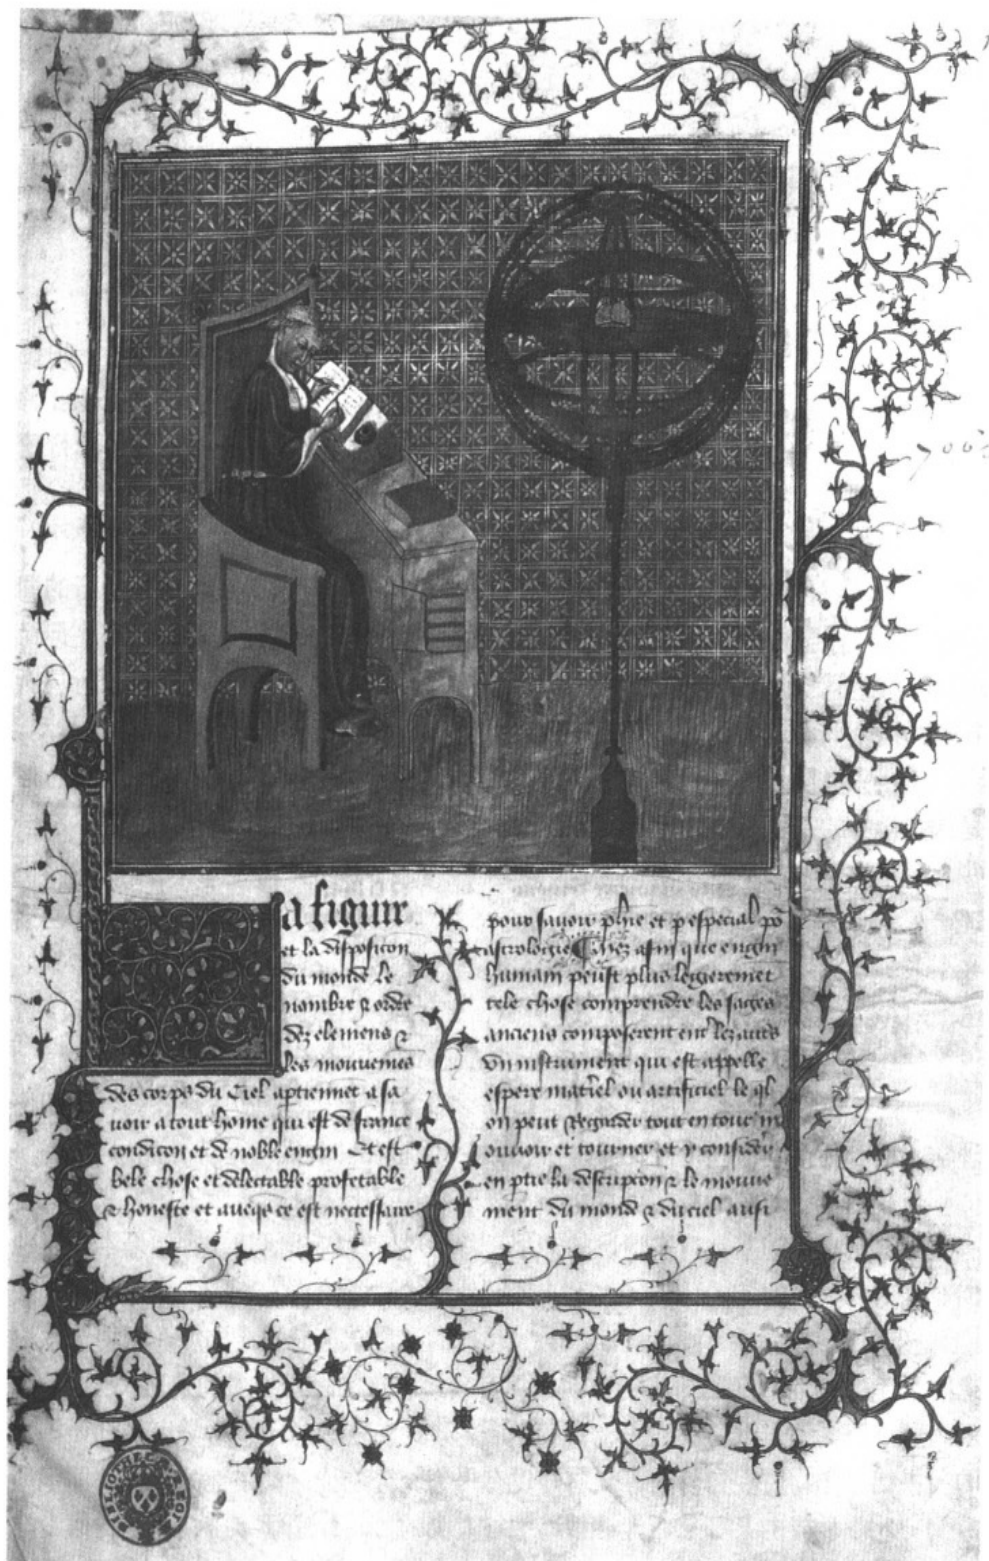 La figure
et la disposicon
du monde le
nombre & ordre
dez elemens &
les mouvemens
des corps du Ciel aptiennet a sa
voir a tout home qui est de france
condicon et de noble engin Et est
bele chose et delectable profetable
& honeste et aueqs ce est necessaire
pour savoir plne et p especial po
astrologie afin que engin
humain peust plus legieremet
tele chose comprendre les sages
anciens composerent ent lez auts
Un instrument qui est appelle
espere matiel ou artificiel le ql
on peut regarder tout entour m
ouvoir et tourner et y consider
en ptie la descripcon & le mouve
ment du monde & du ciel ausi
BIBLIOTHECÆ REGIÆ